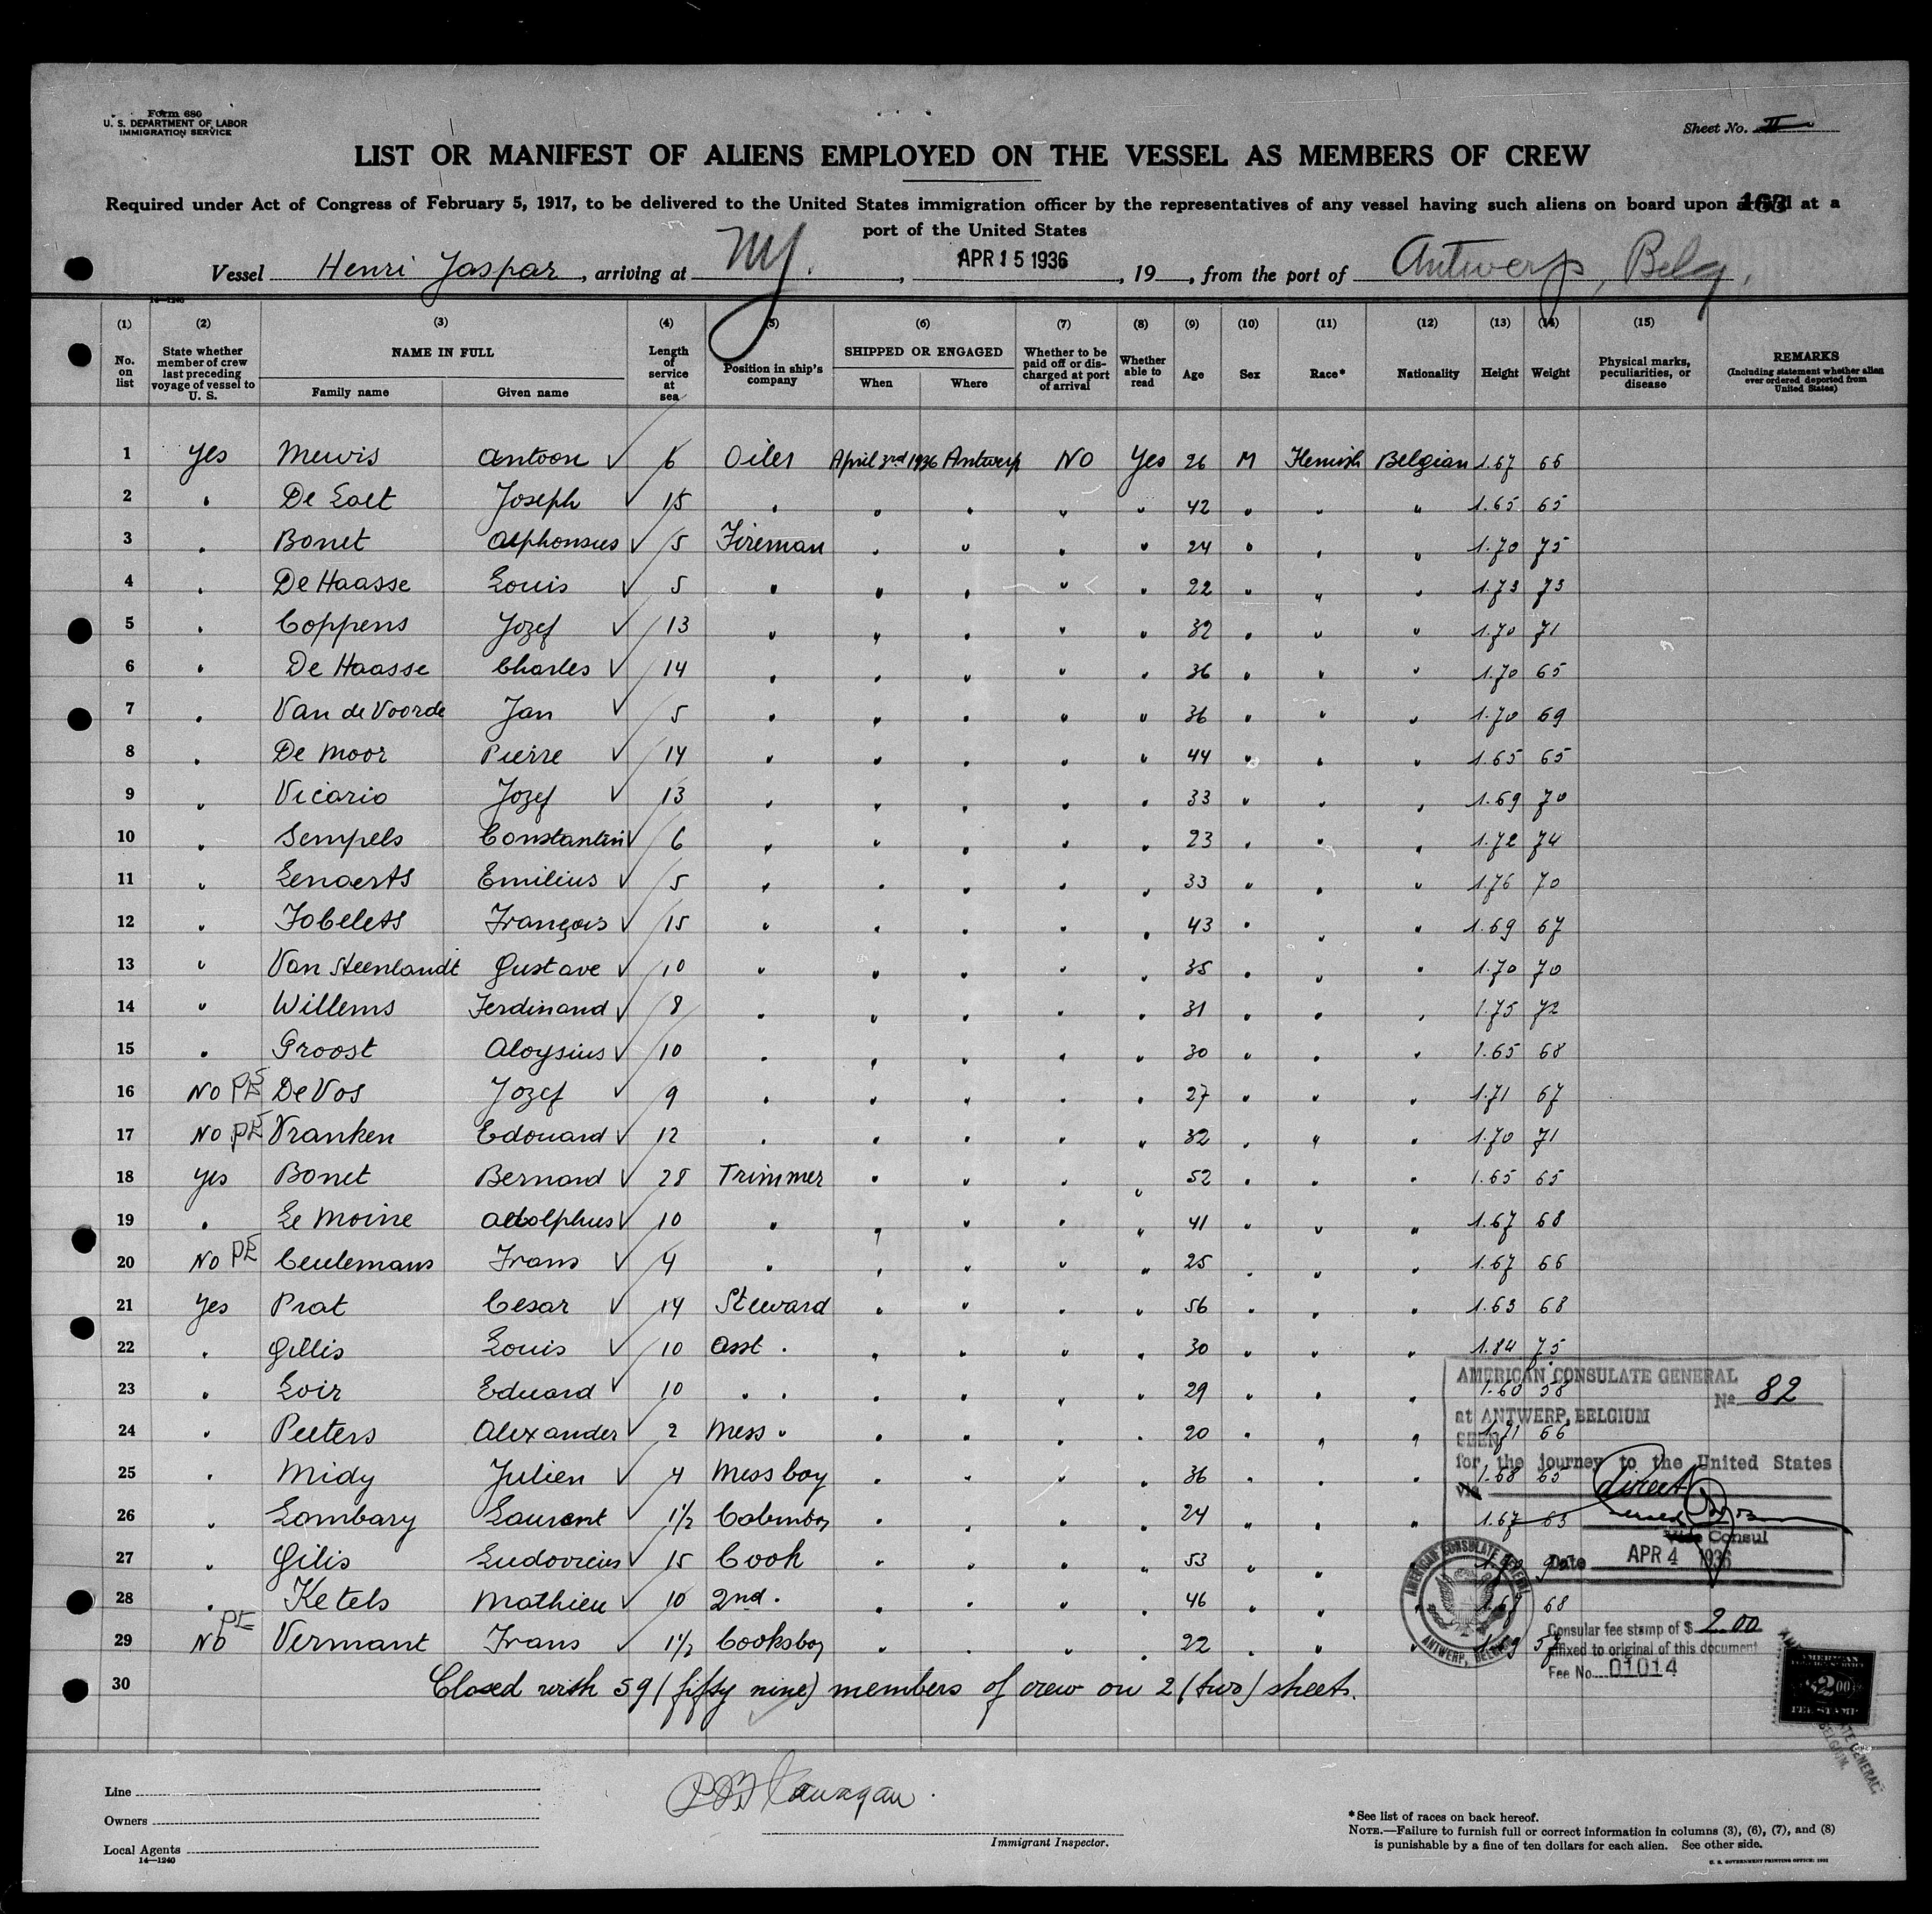 Form 680
U. S. DEPARTMENT OF LABOR
IMMIGRATION SERVICE
Sheet No. II
LIST OR MANIFEST OF ALIENS EMPLOYED ON THE VESSEL AS MEMBERS OF CREW
Required under Act of Congress of February 5, 1917, to be delivered to the United States immigration officer by the representatives of any vessel having such aliens on board upon arrival at a
port of the United States
Vessel Henri Jaspar, arriving at NY., APR 15 1936, 19, from the port of Antwerp, Belg.
14—1240
(1) (2) (3) (4) (5) (6) (7) (8) (9) (10) (11) (12) (13) (14) (15)
No. on list State whether member of crew last preceding voyage of vessel to U. S. NAME IN FULL Family name Given name Length of service at sea Position in ship's company SHIPPED OR ENGAGED When Where Whether to be paid off or discharged at port of arrival Whether able to read Age Sex Race* Nationality Height Weight Physical marks, peculiarities, or disease REMARKS (Including statement whether alien ever ordered deported from United States)
1 Yes Mewis Antoon ✓ 6 Oiler April 3rd 1936 Antwerp NO Yes 26 M Flemish Belgian 1.67 66
2 " De Laet Joseph ✓ 15 " " " " " 42 " " " 1.65 65
3 " Bonet Alphonsus ✓ 5 Fireman " " " " 24 " " " 1.70 75
4 " De Haasse Louis ✓ 5 " " " " " 22 " " " 1.73 73
5 " Coppens Jozef ✓ 13 " " " " " 32 " " " 1.70 71
6 " De Haasse Charles ✓ 14 " " " " " 36 " " " 1.70 65
7 " Van de Voorde Jan ✓ 5 " " " " " 36 " " " 1.70 69
8 " De Moor Pierre ✓ 14 " " " " " 44 " " " 1.65 65
9 " Vicario Jozef ✓ 13 " " " " " 33 " " " 1.69 70
10 " Sempels Constantin ✓ 6 " " " " " 23 " " " 1.72 74
11 " Lenaerts Emilius ✓ 5 " " " " " 33 " " " 1.76 70
12 " Jobelets François ✓ 15 " " " " " 43 " " " 1.69 67
13 " Van Steenlandt Gustave ✓ 10 " " " " " 35 " " " 1.70 70
14 " Willems Ferdinand ✓ 8 " " " " " 31 " " " 1.75 72
15 " Proost Aloysius ✓ 10 " " " " " 30 " " " 1.65 68
16 NO PE De Vos Jozef ✓ 9 " " " " " 27 " " " 1.71 67
17 NO PE Vranken Edouard ✓ 12 " " " " " 32 " " " 1.70 71
18 Yes Bonet Bernard ✓ 28 Trimmer " " " " 52 " " " 1.65 65
19 " Le Moine Adolphus ✓ 10 " " " " " 41 " " " 1.67 68
20 NO PE Ceulemans Frans ✓ 4 " " " " " 25 " " " 1.67 66
21 Yes Prat Cesar ✓ 14 Steward " " " " 56 " " " 1.63 68
22 " Gillis Louis ✓ 10 Asst. " " " " " 30 " " " 1.84 75
23 " Loir Eduard ✓ 10 " " " " " " 29 " " " 1.60 58
24 " Peeters Alexander ✓ 2 Mess " " " " " 20 " " " 1.71 66
25 " Midy Julien ✓ 4 Mess boy " " " " 36 " " " 1.68 65
26 " Lombary Laurent ✓ 1½ Cabinboy " " " " 24 " " " 1.67 63
27 " Gilis Ludovicus ✓ 15 Cook " " " " 53 " " "
28 " Ketels Mathieu ✓ 10 2nd. " " " " " 46 " " " 1.69 68
29 NO PE Vermant Frans ✓ 1½ Cooksboy " " " " 22 " " " 1.69 57
30 Closed with 59 (fifty nine) members of crew on 2 (two) sheets.
AMERICAN CONSULATE GENERAL
No 82
at ANTWERP, BELGIUM
SEEN
for the journey to the United States
via direct
Vice Consul
Date APR 4 1936
AMERICAN CONSULATE GENERAL
ANTWERP, BELGIUM
Consular fee stamp of $ 2.00
affixed to original of this document
Fee No. 01014
AMERICAN
$2.00
FEE STAMP
Line
Owners
Local Agents
14—1240
Immigrant Inspector.
*See list of races on back hereof.
NOTE.—Failure to furnish full or correct information in columns (3), (6), (7), and (8)
is punishable by a fine of ten dollars for each alien. See other side.
U. S. GOVERNMENT PRINTING OFFICE: 1931